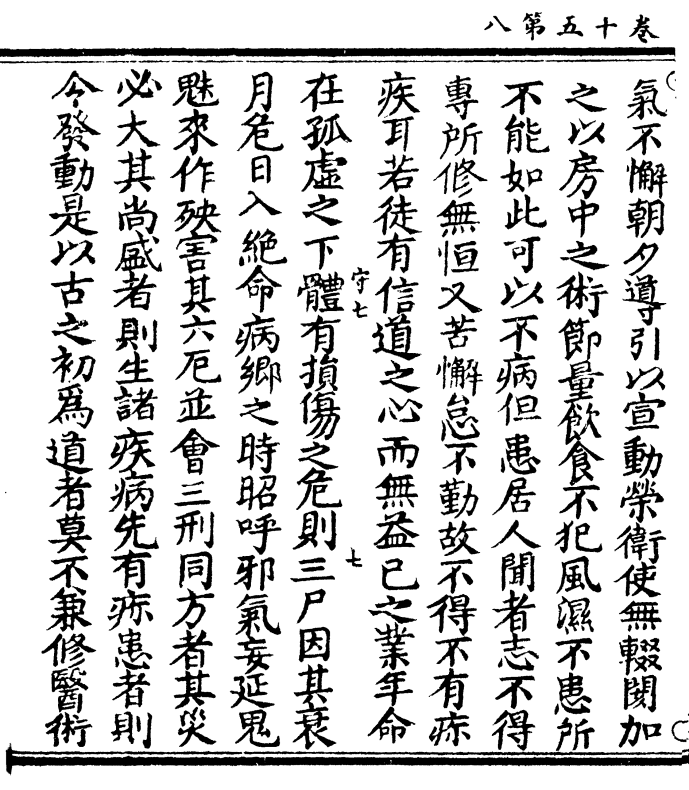 卷十五第八
氣不懈朝夕導引以宣動榮衛使無輟閡加
之以房中之術節量飲食不犯風濕不患所
不能如此可以不病但患居人閒者志不得
專所修無恒又苦懈怠不勤故不得不有疹
疾耳若徒有信道之心而無益己之業年命
在孤虛之下體有損傷之危則三尸因其衰
守七
七
月危日入絕命病鄉之時昭呼邪氣妄延鬼
魅來作殃害其六厄並會三刑同方者其災
必大其尚盛者則生諸疾病先有疹患者則
今發動是以古之初爲道者莫不兼修醫術